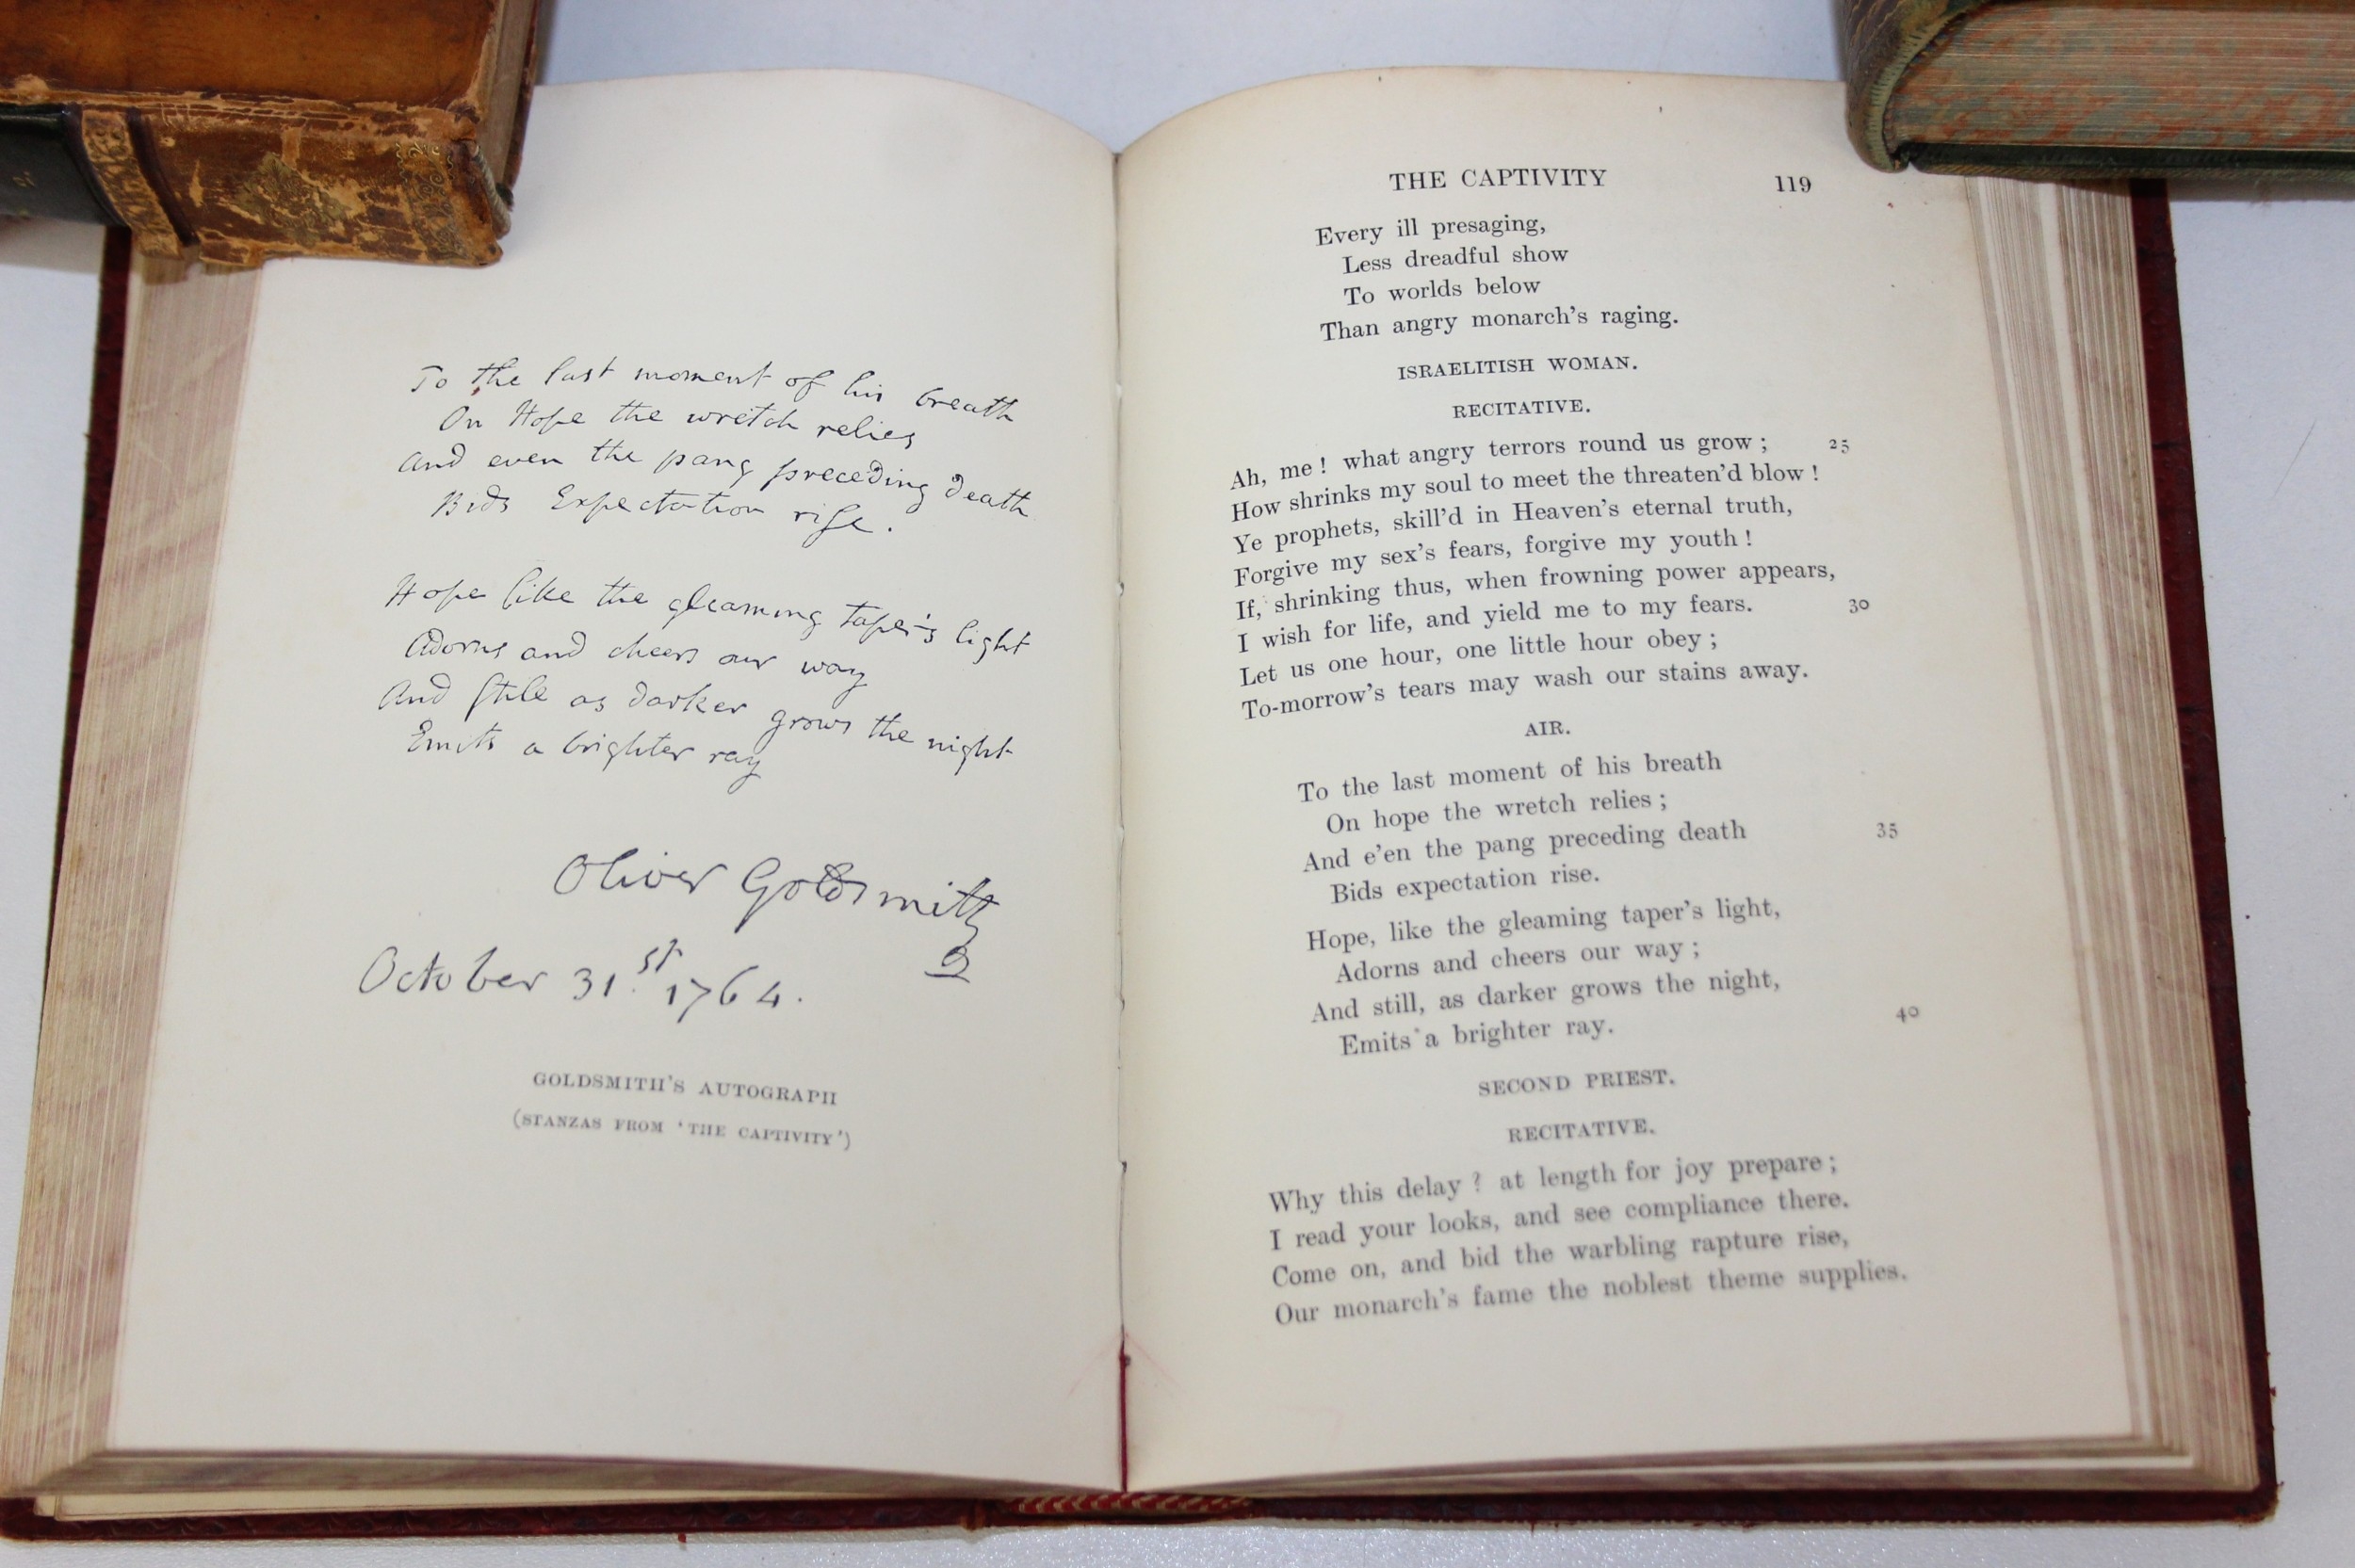 To the last moment of his breath
On Hope the wretch relies
And even the pang preceding death
Bids Expectation rise.
Hope like the gleaming taper's light
Adorns and cheers our way
And still as darker grows the night
Emits a brighter ray
Oliver Goldsmith
October 31st. 1764.
GOLDSMITH'S AUTOGRAPH
(STANZAS FROM 'THE CAPTIVITY')
THE CAPTIVITY 119
Every ill presaging,
Less dreadful show
To worlds below
Than angry monarch's raging.
ISRAELITISH WOMAN.
RECITATIVE.
Ah, me! what angry terrors round us grow; 25
How shrinks my soul to meet the threaten'd blow!
Ye prophets, skill'd in Heaven's eternal truth,
Forgive my sex's fears, forgive my youth!
If, shrinking thus, when frowning power appears,
I wish for life, and yield me to my fears. 30
Let us one hour, one little hour obey;
To-morrow's tears may wash our stains away.
AIR.
To the last moment of his breath
On hope the wretch relies;
And e'en the pang preceding death 35
Bids expectation rise.
Hope, like the gleaming taper's light,
Adorns and cheers our way;
And still, as darker grows the night,
Emits a brighter ray. 40
SECOND PRIEST.
RECITATIVE.
Why this delay? at length for joy prepare;
I read your looks, and see compliance there.
Come on, and bid the warbling rapture rise,
Our monarch's fame the noblest theme supplies.